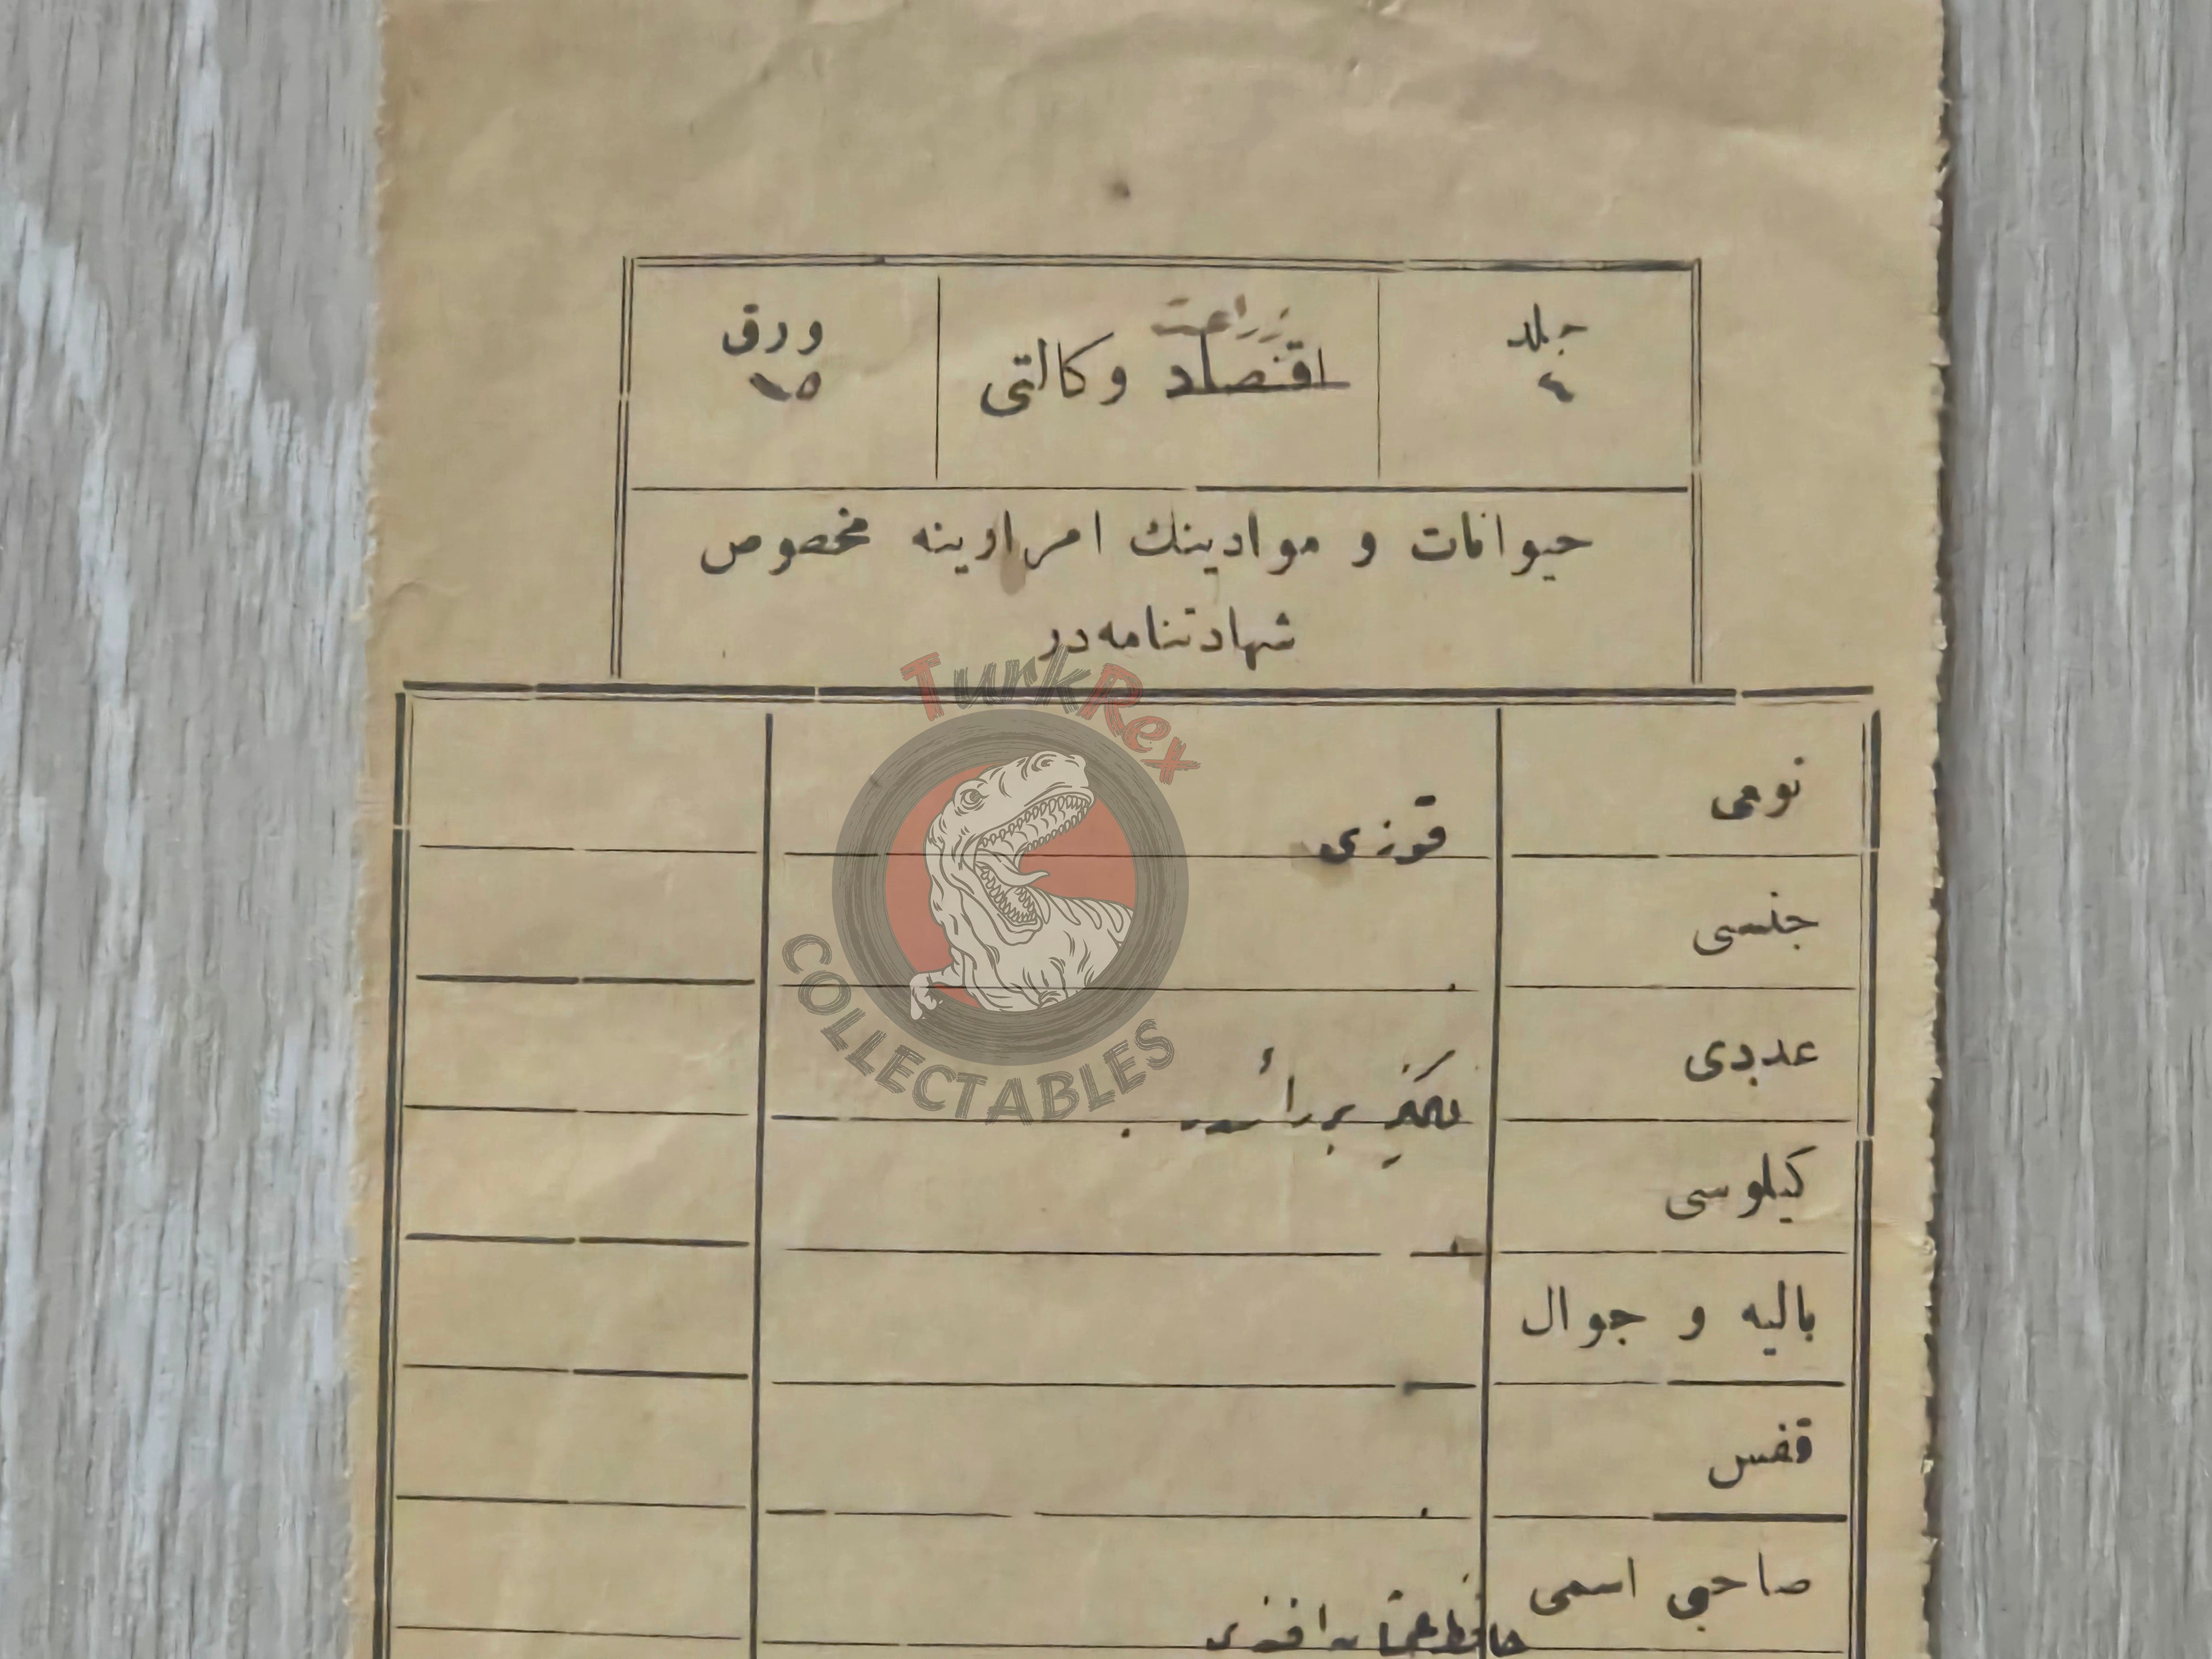 جلد
٤
زراعت
اقتصاد وكالتی
ورق
١٥
حیوانات و موادینك امرارینه مخصوص
شهادتنامه در
TurkRex
COLLECTABLES
نوعی
قوزی
جنسی
عددی
كیلوسی
بالیه و جوال
قفس
صاحبی اسمی
حافظ افندی